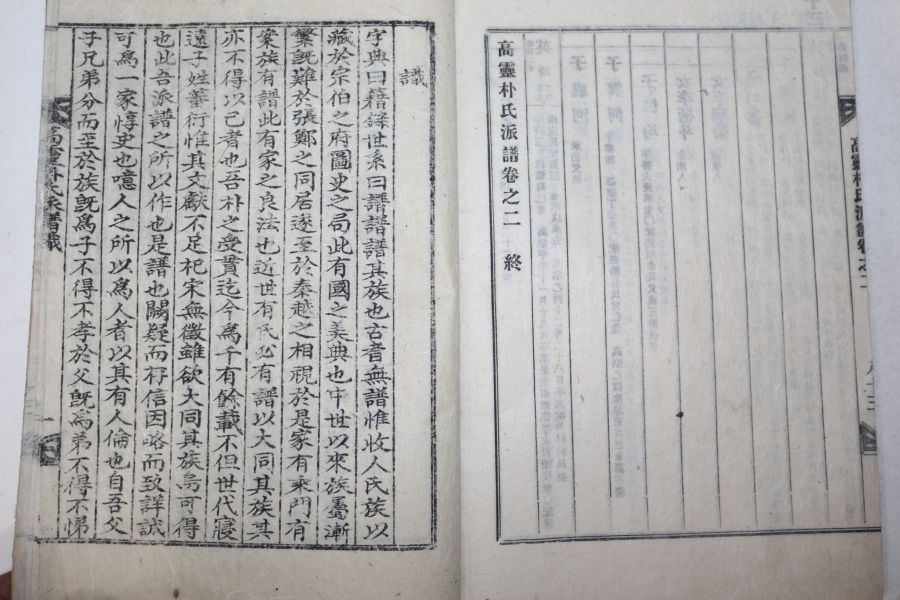 高靈朴氏派譜卷之二
高靈朴氏派譜卷之二 終
識
字典曰籍錄世系曰譜譜其族也古者無譜惟收人氏族以
藏於宗伯之府圖史之局此有國之美典也中世以來族屬漸
繁旣難於張鄭之同居遂至於秦越之相視於是家有乘門有
案族有譜此有家之良法也近世有氏必有譜以大同其族其
亦不得以已者也吾朴之受貫迄今爲千有餘載不但世代寢
遠子姓蕃衍惟其文獻不足杞宋無徵雖欲大同其族烏可得
也此吾派譜之所以作也是譜也闕疑而存信因略而致詳誠
可爲一家惇史也噫人之所以爲人者以其有人倫也自吾父
子兄弟分而至於族旣爲子不得不孝於父旣爲弟不得不悌
高靈朴氏派譜識